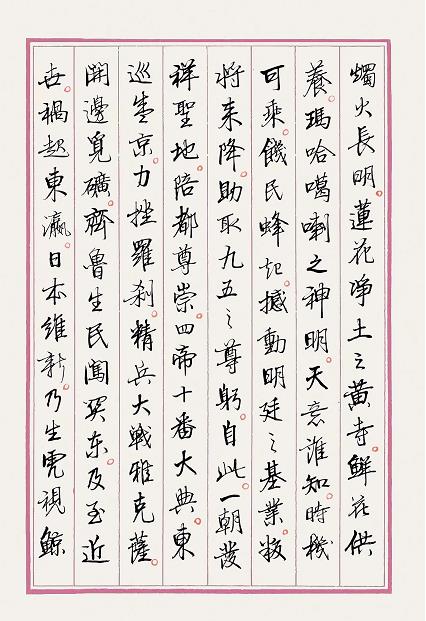 燭火長明。蓮花净土之黄寺。鮮花供
養。瑪哈噶喇之神明。天意誰知。時機
可乘。饑民蜂起。撼動明廷之基業。叛
将来降。助取九五之尊躬。自此。一朝發
祥聖地。陪都尊崇。四帝十番大典。東
巡盛京。力挫羅刹。精兵大戰雅克薩。
開邊覓礦。齊魯生民闖関东。及至近
世。禍起東瀛。日本維新。乃生虎視鯨